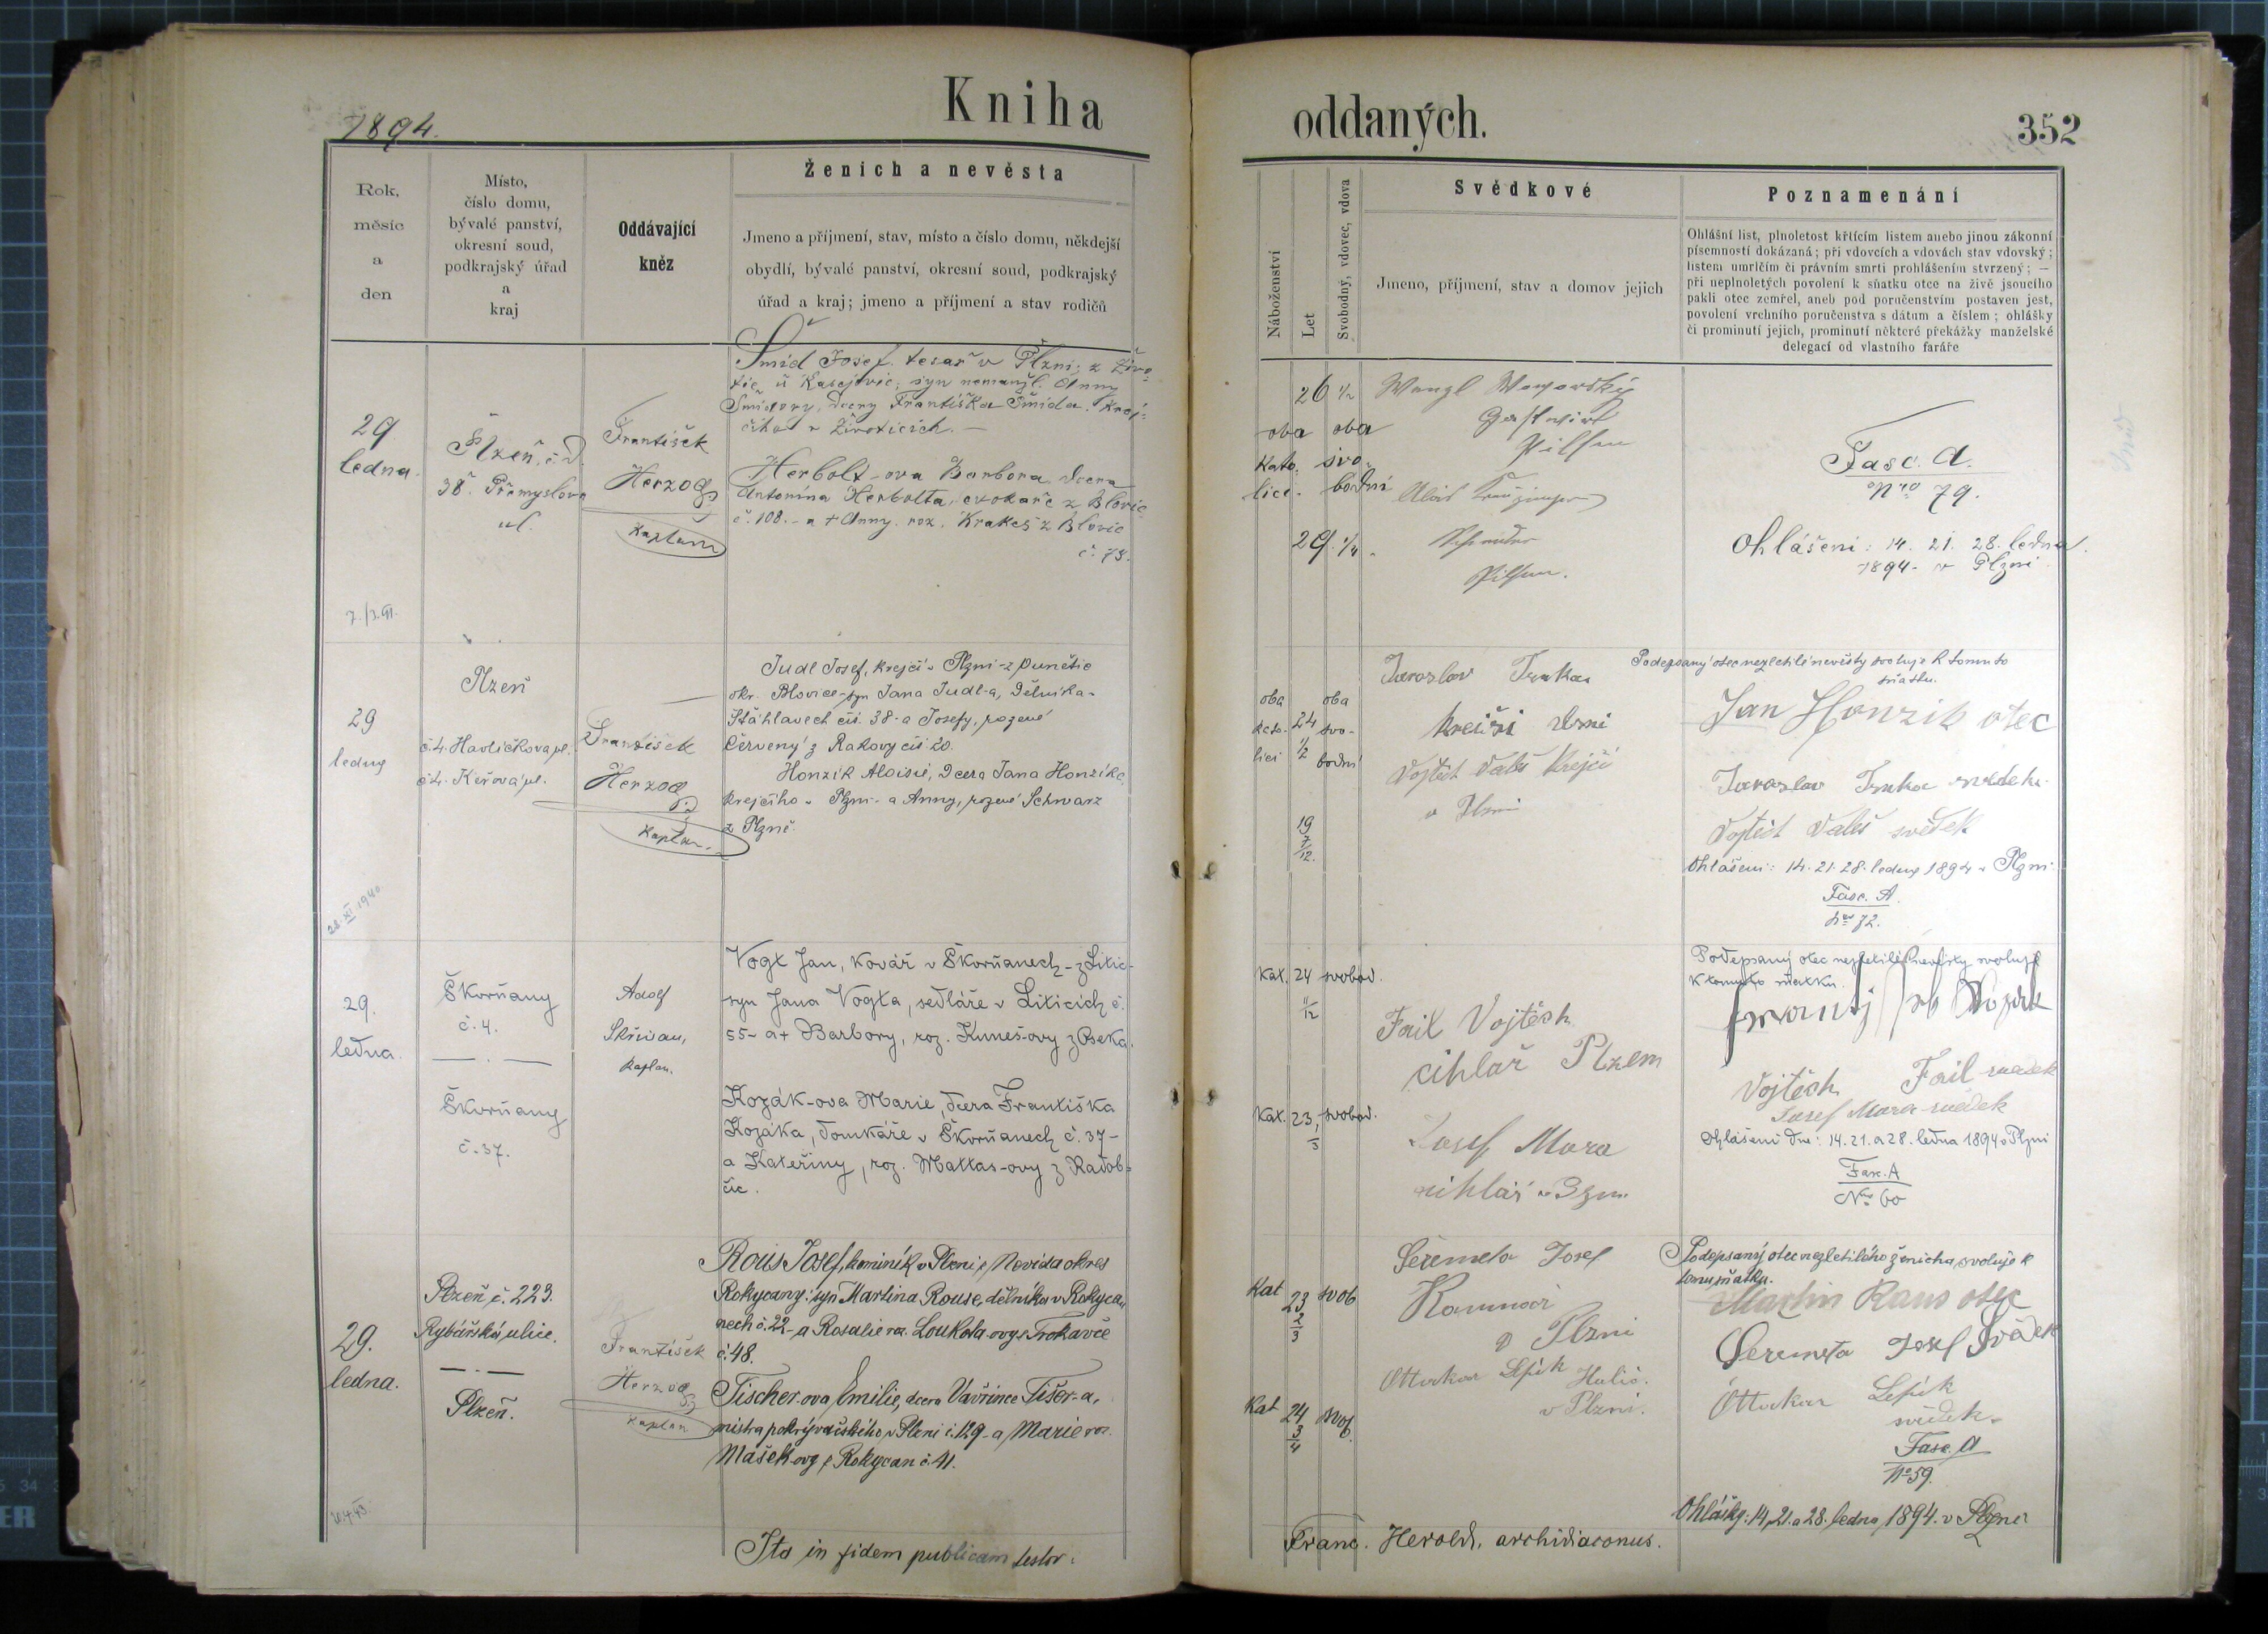 Kniha
oddaných.
1894.
352
Rok,
měsíc
a
den
Místo,
číslo domu,
bývalé panství,
okresní soud,
podkrajský úřad
a
kraj
Oddávající
kněz
Ženich a nevěsta
Jmeno a příjmení, stav, místo a číslo domu, někdejší
obydlí, bývalé panství, okresní soud, podkrajský
úřad a kraj; jmeno a příjmení a stav rodičů
Náboženství
Let
Svobodný, vdovec, vdova
Svědkové
Jmeno, příjmení, stav a domov jejich
Poznamenání
Ohlášní list, plnoletost křticím listem anebo jinou zákonní
písemností dokázaná; při vdovcích a vdovách stav vdovský;
listem umrlčím či právním smrti prohlášením stvrzený; —
při neplnoletých povolení k sňatku otce na živě jsoucího
pakli otec zemřel, aneb pod poručenstvím postaven jest,
povolení vrchního poručenstva s dátum a číslem; ohlášky
či prominutí jejich, prominutí některé překážky manželské
delegací od vlastního faráře
29
ledna.
Plzeň, č. d.
38. Přemyslova
ul.
František
Herzog
kaplan
Šmíd Josef, tesař v Plzni; z Živo-
tic u Kasejovic; syn nemanžl. Anny
Šmídovy, dcery Františka Šmída, krej-
čího v Životicích. —
Herbolt-ova Barbora dcera
Antonína Herbolta, cvokaře z Blovic
č. 108. - a + Anny. roz. Krakeš z Blovic
č. 73.
26 1/2
oba oba
kato- svo-
lici. bodní
29. 1/4
Pilsen
Pilsen.
Fasc. A.
Nro 79.
Ohlášení: 14. 21. 28. ledna.
1894. v Plzni
29
ledna
Plzeň
č. 4. Havlíčkova ul.
František
Herzog
kaplan.
Judl Josef, krejčí v Plzni - z Punětic
okr. Blovice - syn Jana Judl-a, dělníka v
Stáhlavech čís. 38 - a Josefy, rozené
Červený z Rakovy čís 20.
Honzík Aloisie, dcera Jana Honzíka,
krejčího v Plzni - a Anny, rozené Schwarz
z Plzně
oba oba
kato- 24 svo-
lici 1/2 bodní
19
7/12.
Jaroslav Trnka
Vojtěch Valeš krejčí
v Plzni
Podepsaný otec nezletilé nevěsty svoluje k tomuto
sňatku.
Jan Honzik otec
Jaroslav Trnka
Vojtěch Valeš svědek
Ohlášení: 14. 21. 28. ledna 1894 v Plzni
Fasc. A.
Nro 72.
28. XI. 1940
29.
ledna.
Škorňany
č. 4.
Škorňany
č. 37.
Adolf
Skřivan,
kaplan.
Vogt Jan, kovář v Škorňanech - z Litic -
syn Jana Vogta, sedláře v Liticích č.
55 - a + Barbory, roz. Kuneš-ovy z Oseka.
Kozák-ova Marie, dcera Františka
Kozáka, domkáře v Škorňanech č. 37 -
a Kateřiny, roz. Mattas-ovy z Radob-
čic.
Kat. 24 svobod.
11/12
Kat. 23, svobod.
1/3
Fail Vojtěch
cihlář Plzem
Josef Mara
cihlář
Podepsaný otec nezletilé nevěsty svoluje
k tomuto sňatku.
Vojtěch Fail svědek
Josef Mara svědek
Ohlášení dne: 14. 21. a 28. ledna 1894 v Plzni
Fasc. A
Nro 60
29.
ledna.
Plzeň č. 223.
Rybářská ulice.
Plzeň.
František
Herzog
kaplan
Rous Josef, kominík v Plzni, z Nevida okres
Rokycany: syn Martina Rouse, dělníka v Rokyca-
nech č. 22 - a Rosalie roz. Loukota-ovy z Trokavče
č. 48.
Tischer-ova Emilie, dcera Vavřince Tišer-a,
mistra pokrývačského v Plzni č. 129 - a Marie roz.
Mašek-ovy z Rokycan č. 41.
Kat 23 svob
2/3
Kat 24 svob.
3/4
Šeremeta Josef
v Plzni
Ottokar Lepík
v Plzni.
Podepsaný otec nezletilého ženicha, svoluje k
tomu sňatku.
Martin Raus otec
Šeremeta Josef Svědek
Ottokar Lepík
svědek.
Fasc. A
No 59.
Ohlášky: 14, 21. a 28. ledna, 1894. v Plzni
Ita in fidem publicam testor:
Franc. Herold, archidiaconus.